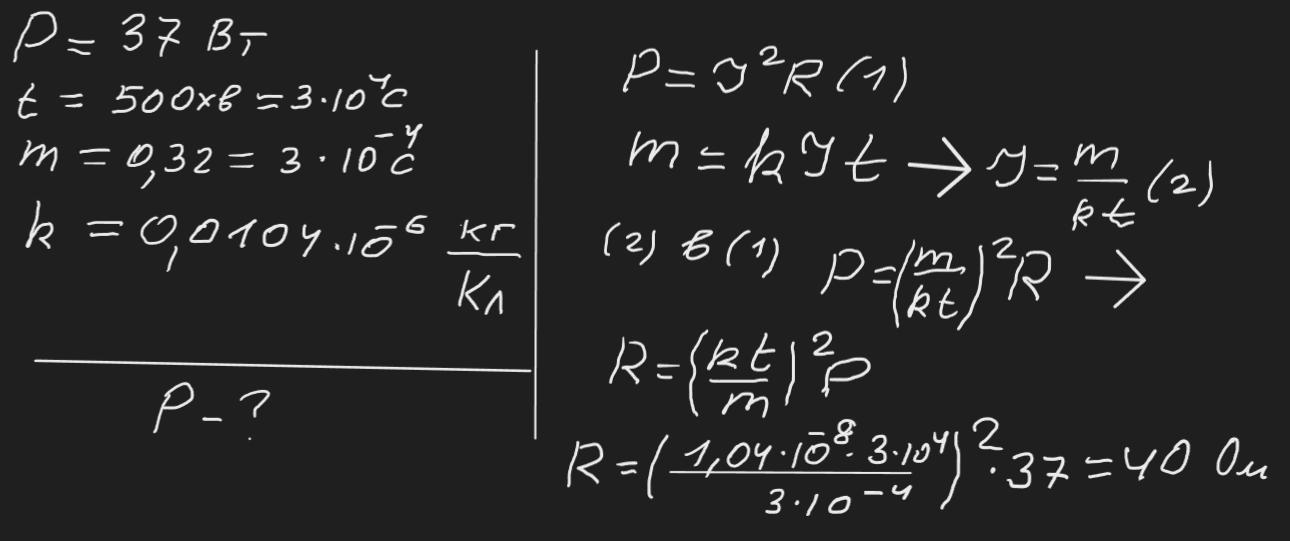 P = 37 Вт
t = 500хв = 3·10⁴с
m = 0,32 = 3·10⁻⁴с
k = 0,0104·10⁻⁶ кг/Кл
P - ?
P = I²R (1)
m = kIt → I = m/kt (2)
(2) в (1) P = (m/kt)²R →
R = (kt/m)²P
R = (1,04·10⁻⁸·3·10⁴/3·10⁻⁴)²·37 = 40 Ом